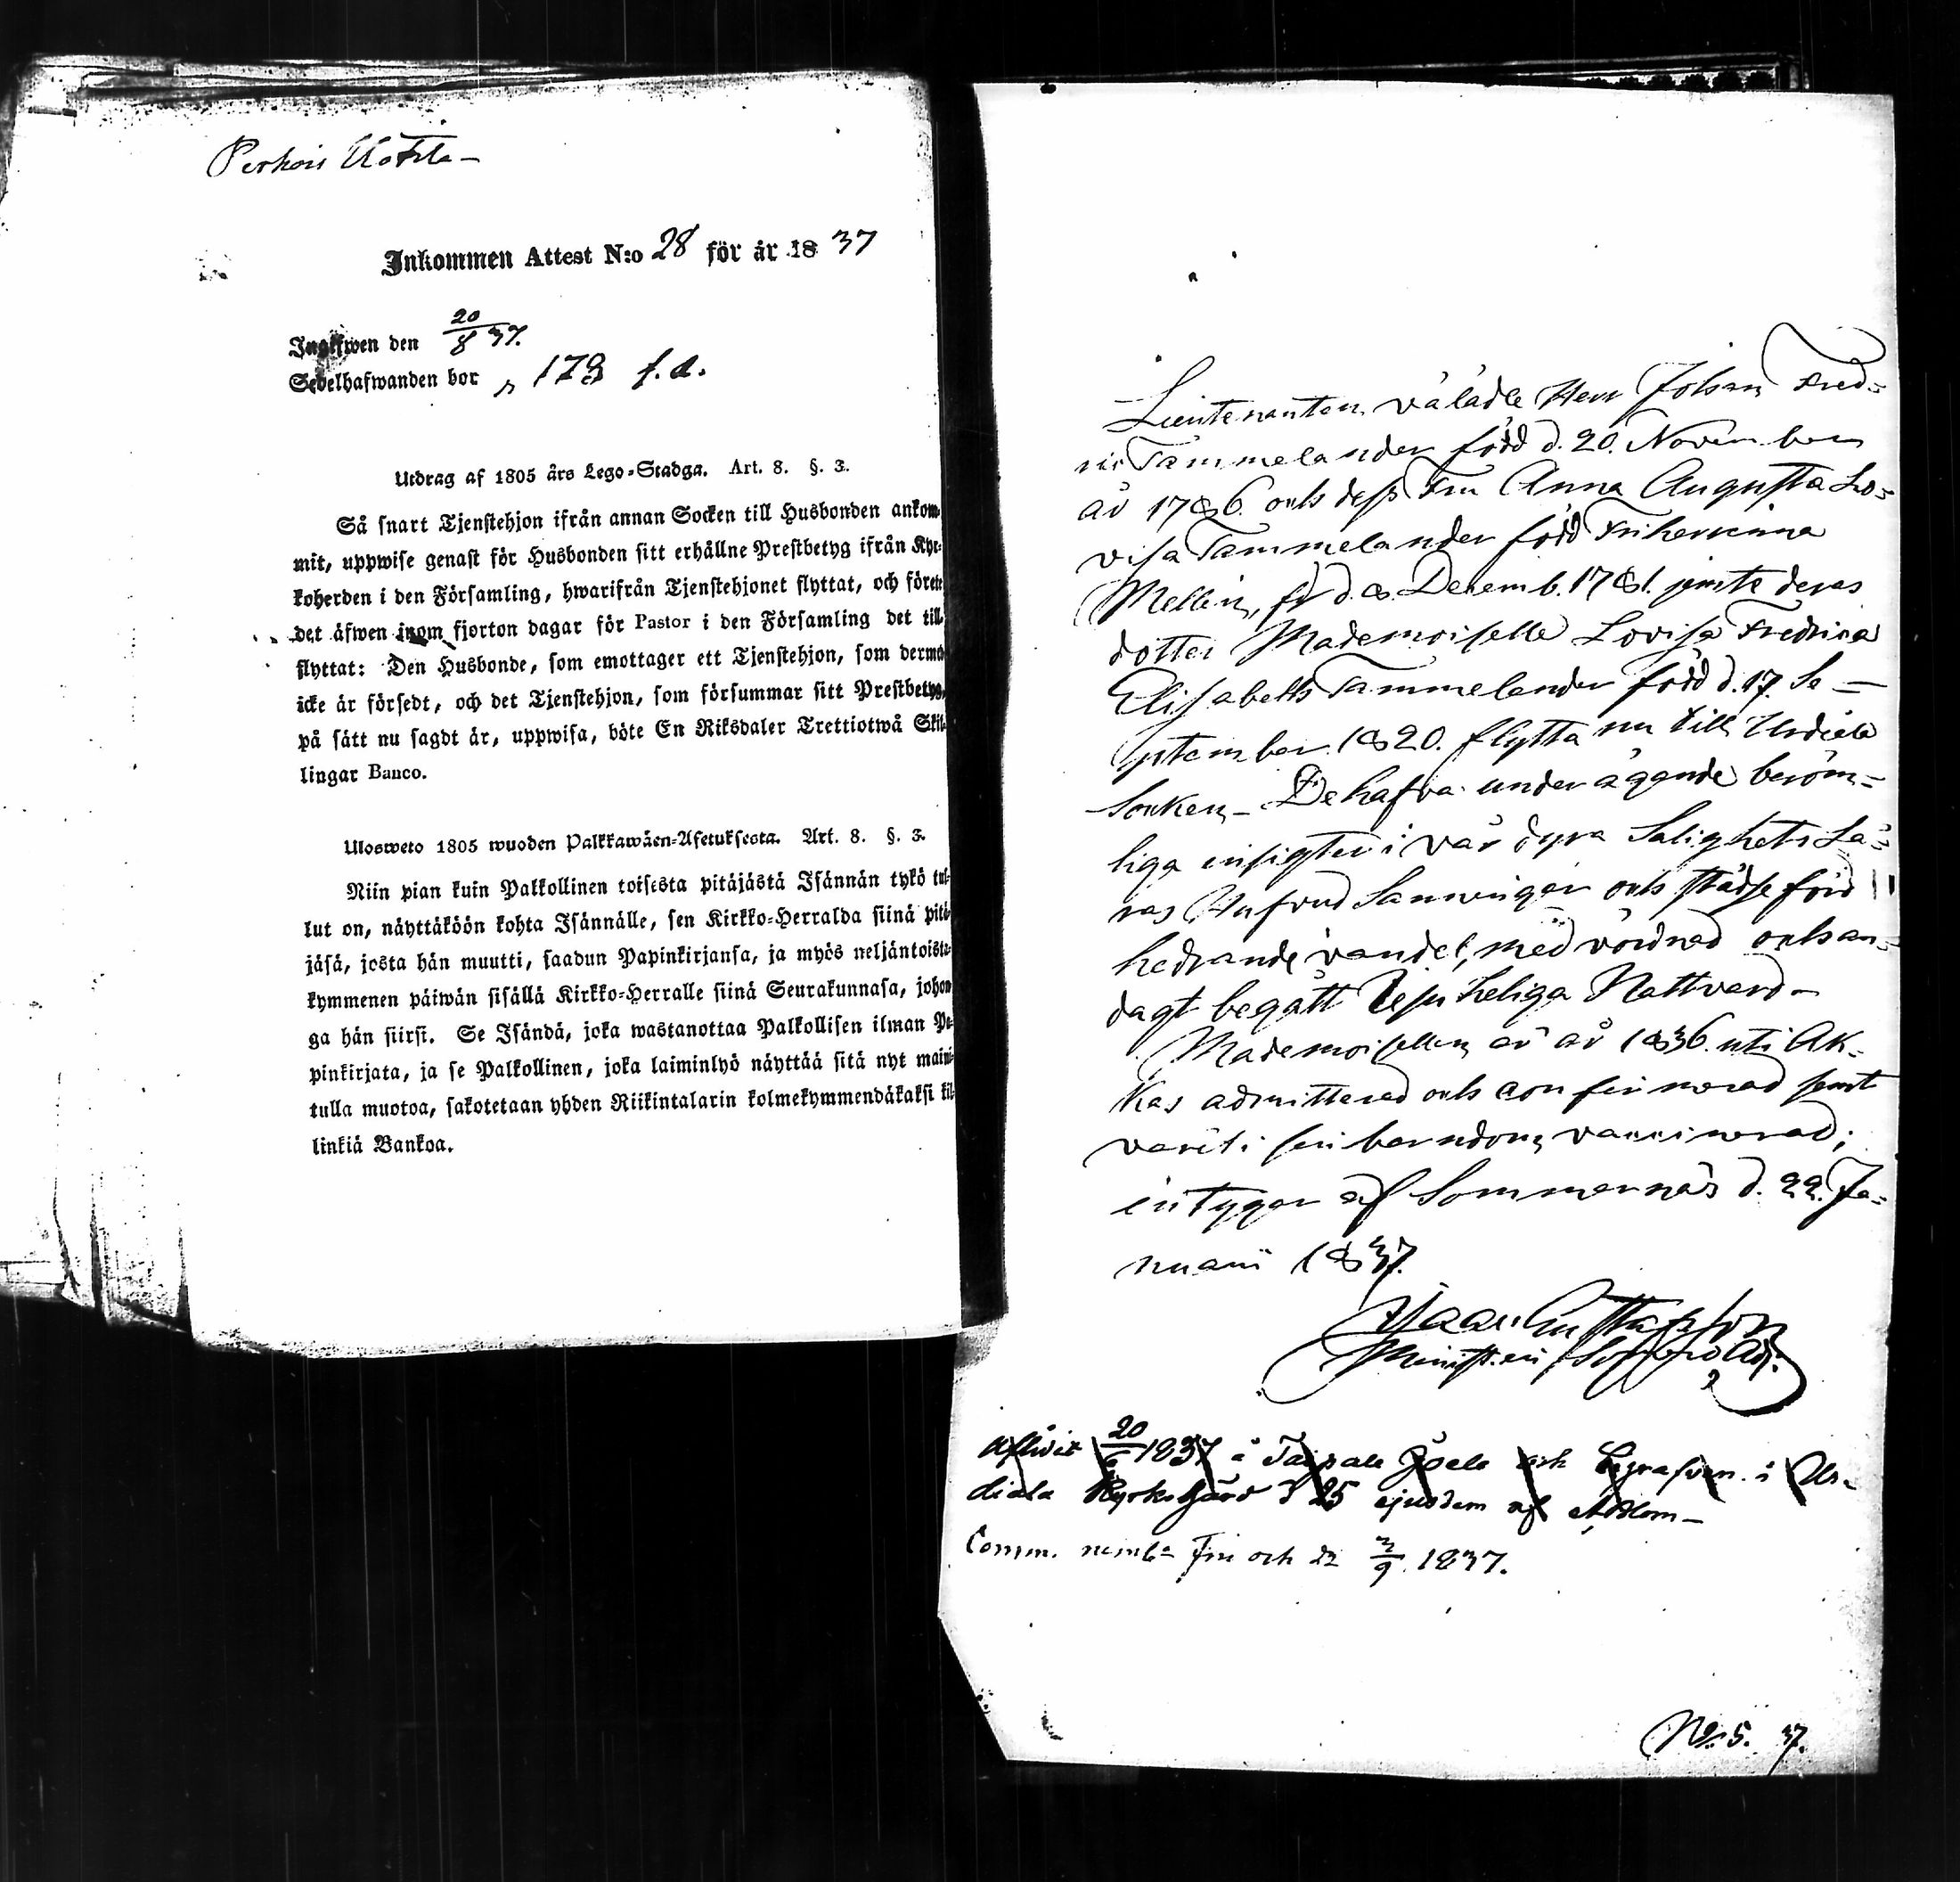 Perhois Uotila –
Inkommen Attest N:o 28 för år 1837
Ingifwen den 20/8 37.
Sedelhafwanden bor p 173 f.d.
Utdrag af 1805 års Lego-Stadga. Art. 8. §. 3.
Så snart Tjenstehjon ifrån annan Socken till Husbonden ankom-
mit, uppwise genast för Husbonden sitt erhållne Prestbetyg ifrån Kyr-
koherden i den Församling, hwarifrån Tjenstehjonet flyttat, och förete
det äfwen inom fjorton dagar för Pastor i den Församling det till-
flyttat: Den Husbonde, som emottager ett Tjenstehjon, som dermed
icke är försedt, och det Tjenstehjon, som försummar sitt Prestbetyg,
på sätt nu sagdt är, uppwisa, böte En Riksdaler Trettiotwå Skil-
lingar Banco.
Ulosweto 1805 wuoden Palkkawäen-Asetuksesta. Art. 8. §. 3.
Niin pian kuin Palkollinen toisesta pitäjästä Isännän tykö tul-
lut on, näyttäköön kohta Isännälle, sen Kirkko-Herralda siinä pitä-
jäsä, josta hän muutti, saadun Papinkirjansa, ja myös neljäntoista-
kymmenen päiwän sisällä Kirkko-Herralle siinä Seurakunnasa, johon-
ga hän siirsi. Se Isändä, joka wastanottaa Palkollisen ilman Pa-
pinkirjata, ja se Palkollinen, joka laiminlyö näyttää sitä nyt maini-
tulla muotoa, sakotetaan yhden Riikintalarin kolmekymmendäkaksi kil-
linkiä Bankoa.
Lieutenanten välädle Herr Johan Fred-
ric Tammelander född d. 20. November
år 1786. och dess Fru Anna Augusta Lo-
visa Tammelander född Friherrinna
Mellin, fd d. 8. Decemb. 1781. jemte deras
dotter Mademoiselle Lovisa Fredrica
Elisabeth Tammelander född d. 17. Se-
ptember 1820. flytta nu till Urdiala
Socken – De hafva underägande beröm-
liga insigter i vår dyra Salighets Lä-
ras Hufvud Sanningar och städse förd
hedrande vandel, med vördnad och an-
dagt begått Desu heliga Nattvard –
Mademoisellen är år 1836. uti Ak-
kas admitterad och confirmerad samt
varit i sin barndom vaccinerad;
intygar af Sommernäs d. 22. Ja-
nuarii 1837.
Isaac Gustafsson
Ministerii Adj.
aflidit 20/8 1837 å Taipale och begrafven i Ur-
diala Kyrkogård d 25 ejusdem af
Comm. Fru och 3/9 1837.
No. 5. 37.